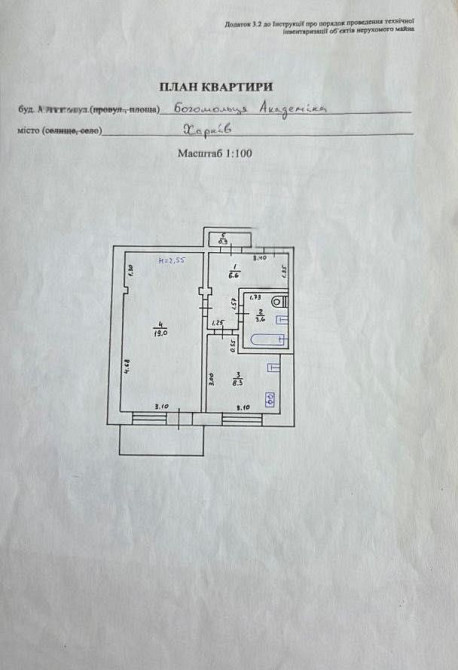 Додаток 3.2 до Інструкції про порядок проведення технічної
інвентаризації об'єктів нерухомого майна
ПЛАН КВАРТИРИ
буд. вул.(провул., площа) Богомольця Академіка
місто (селище, село) Харків
Масштаб 1:100
5
0.9
H=2,55
3.40
1
6.6
1.30
1.85
1.73
1.57
2
3.6
4
19.0
1.25
0.55
3
8.5
4.68
3.00
3.10
3.10